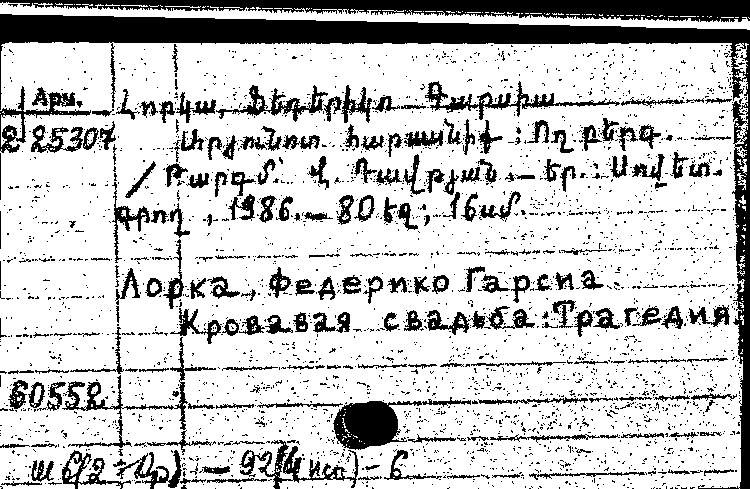 Арм.
2 25307
Լորկա, Ֆեդերիկո Գարսիա
Արյունոտ հարսանիք : Ողբերգ.
/ Թարգմ. Վ. Դավթյան. — Եր.: Սովետ.
գրող, 1986. — 80 էջ; 16սմ.
Лорка, Федерико Гарсиа
Кровавая свадьба: Трагедия.
60552
— 92(4Исп) - 6